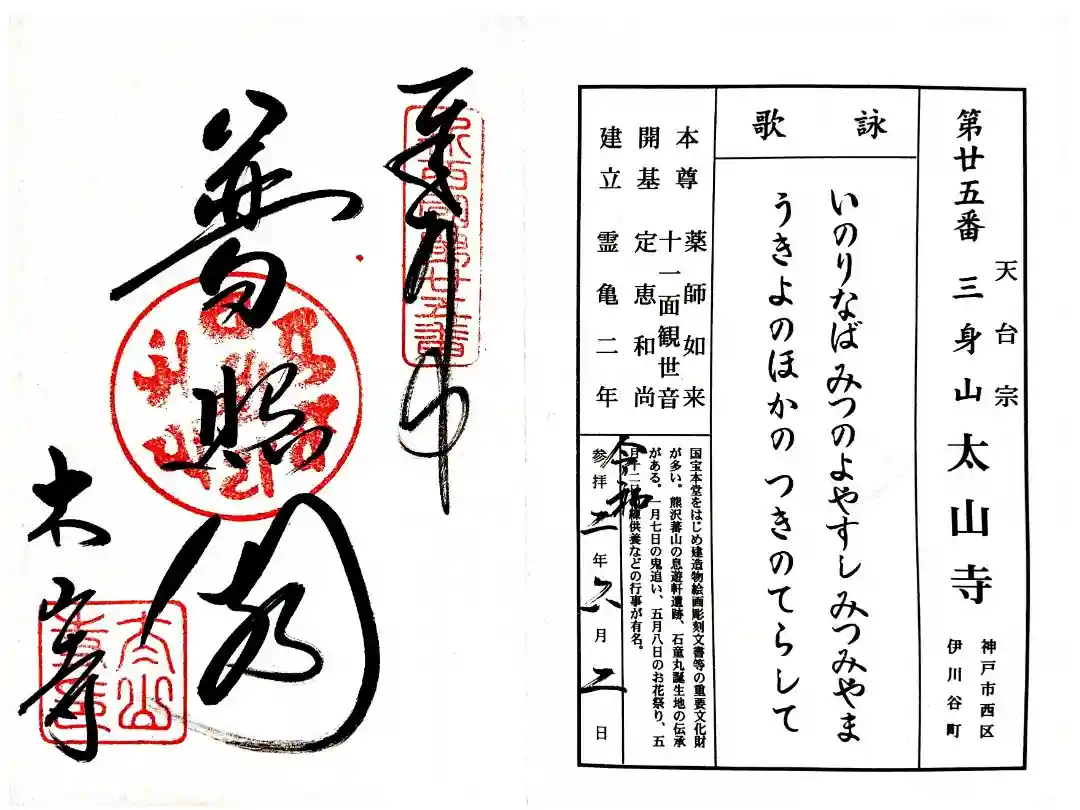 天台宗
第廿五番 三身山 太山寺
神戸市西区
伊川谷町
詠歌
いのりなば みつのよやすし みつみやま
うきよのほかの つきのてらして
本尊 薬師如来
十一面観世音
開基 定恵和尚
建立 霊亀二年
国宝本堂をはじめ建造物絵画彫刻文書等の重要文化財
が多い。熊沢蕃山の息遊軒遺跡、石童丸誕生地の伝承
がある。一月七日の鬼追い、五月八日のお花祭り、五
月十二日 練供養などの行事が有名。
令和
参拝 二年六月二日
新西国第廿五番
普照